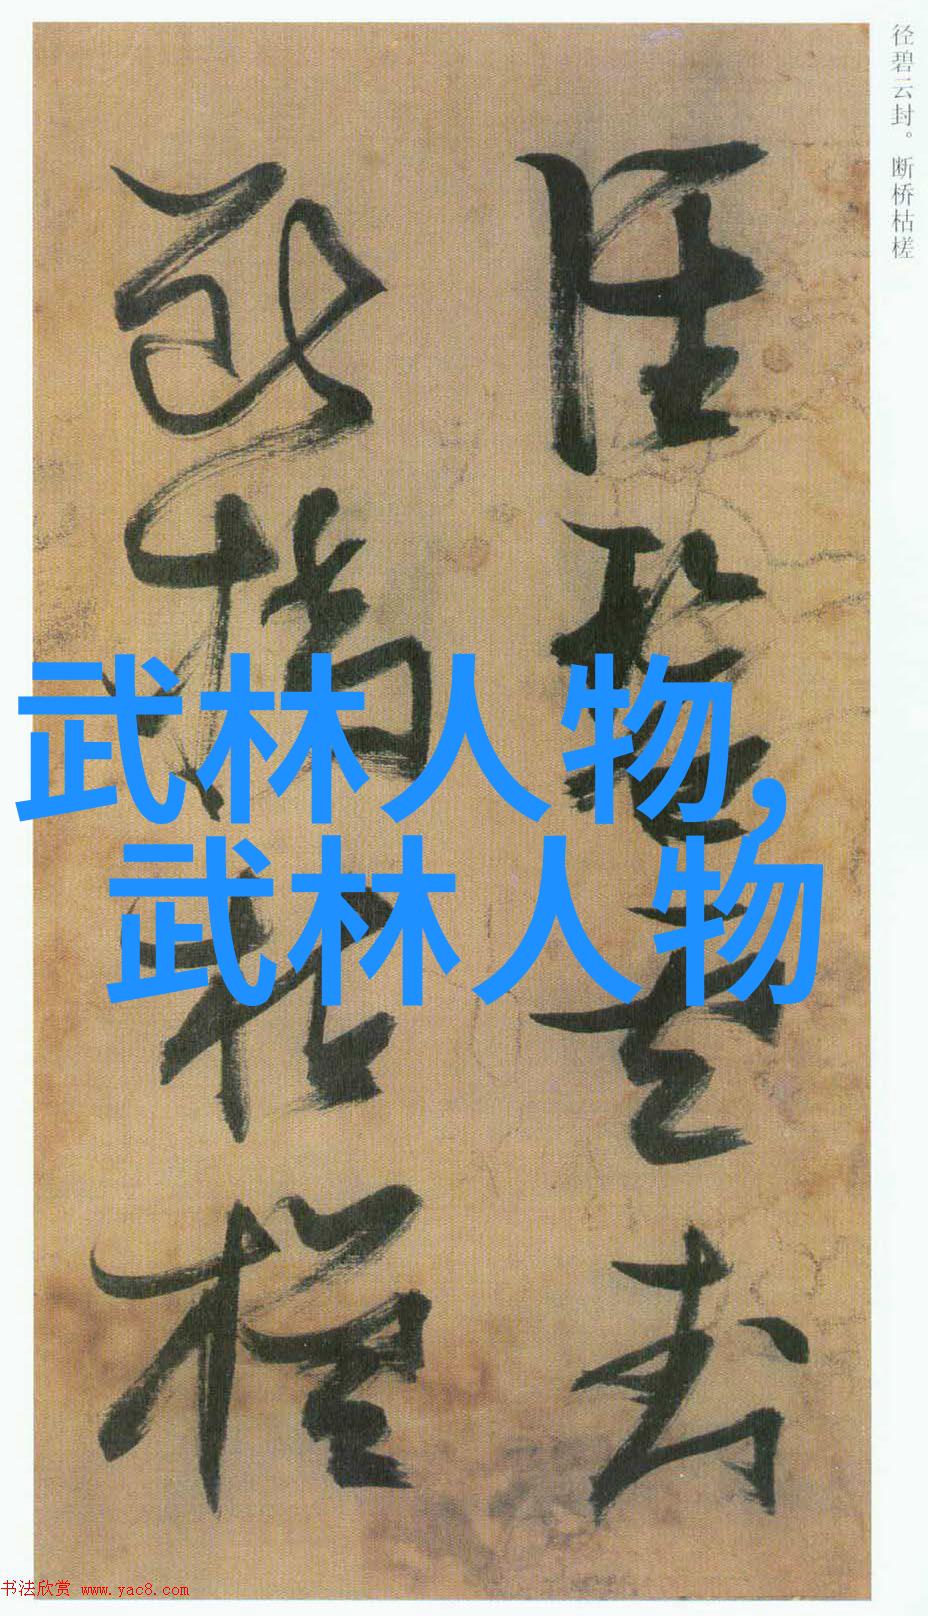 径碧云封。断桥枯槎
径碧云封
断桥枯槎
武林人物,
武林人物
书法欣赏 www.yac8.com